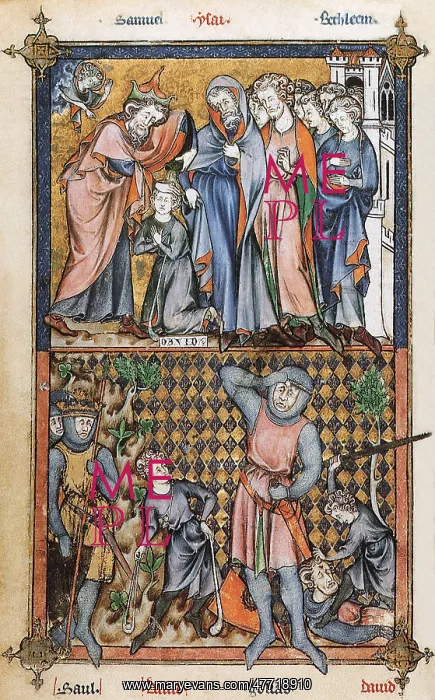 Samuel ysai. Bethleem.
ME
PL
DAVID
ME
PL
Saul. david golias david
www.maryevans.com/47718910